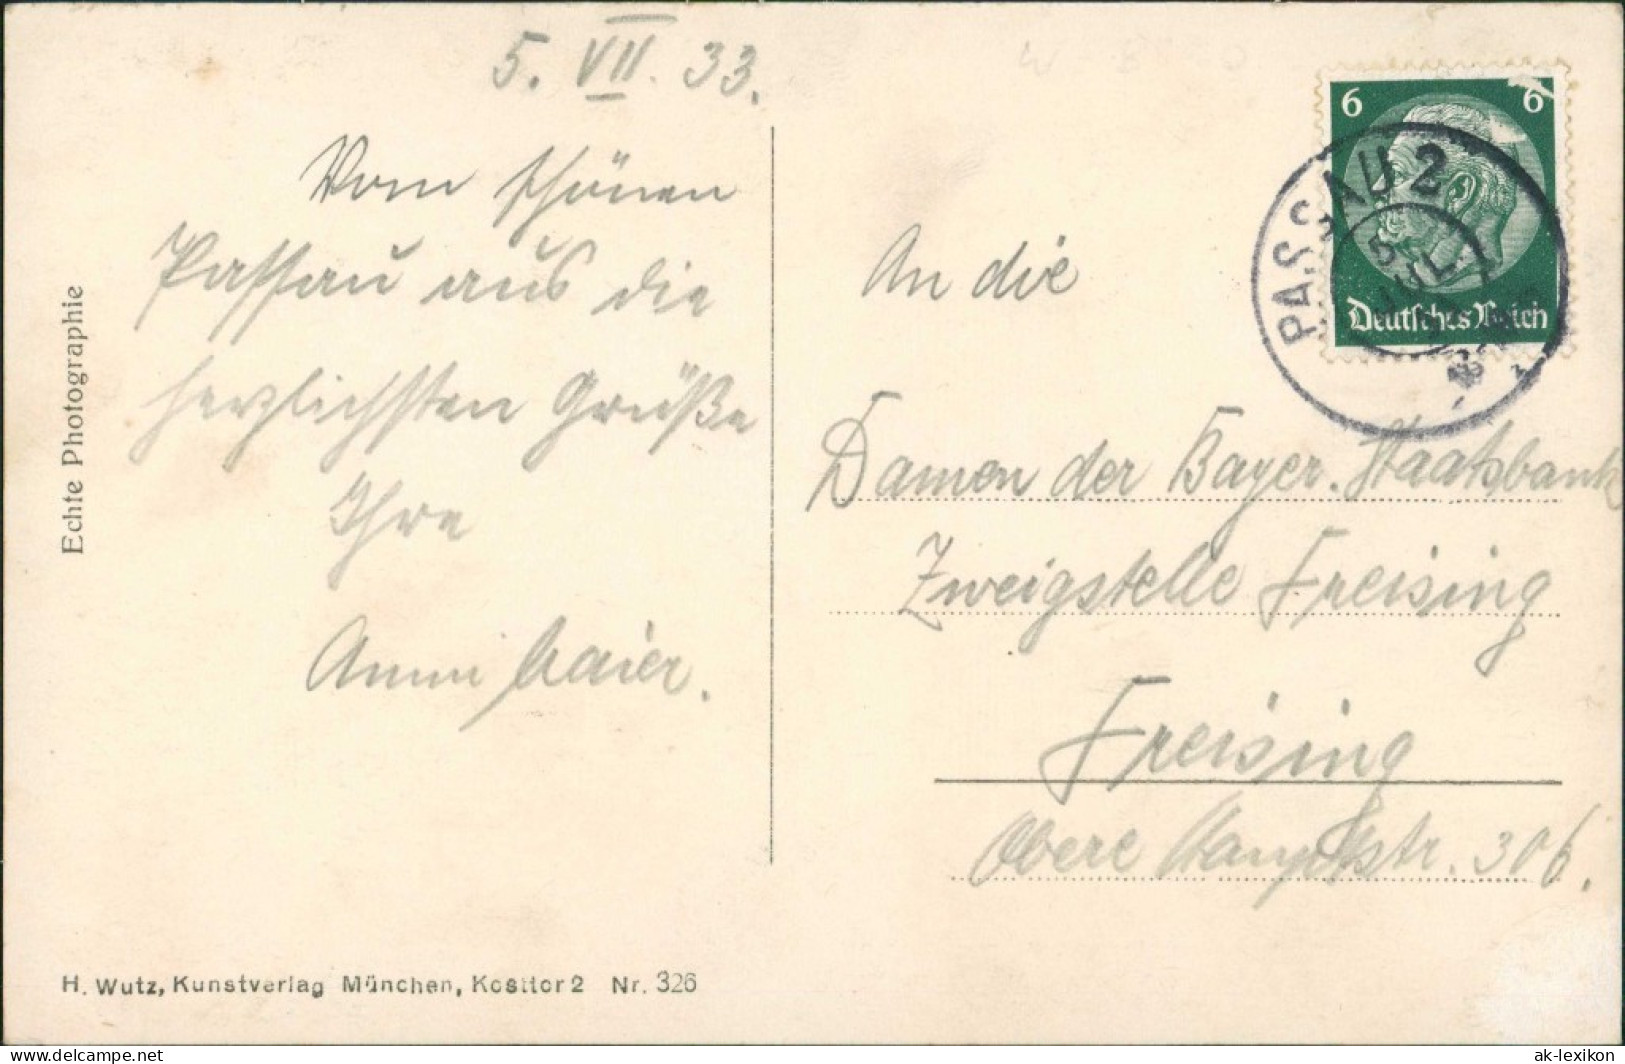 5. VII. 33.
Vom schönen
Passau aus die
herzlichsten Grüße
Ihre
Anni Maier.
Echte Photographie
H. Wutz, Kunstverlag München, Kosttor 2 Nr. 326
6 6
Deutsches Reich
PASSAU 2
5.
JUL.
An die
Damen der Bayer. Staatsbank
Zweigstelle Freising
Freising
Obere Hauptstr. 306.
delcampe.net
ak-lexikon